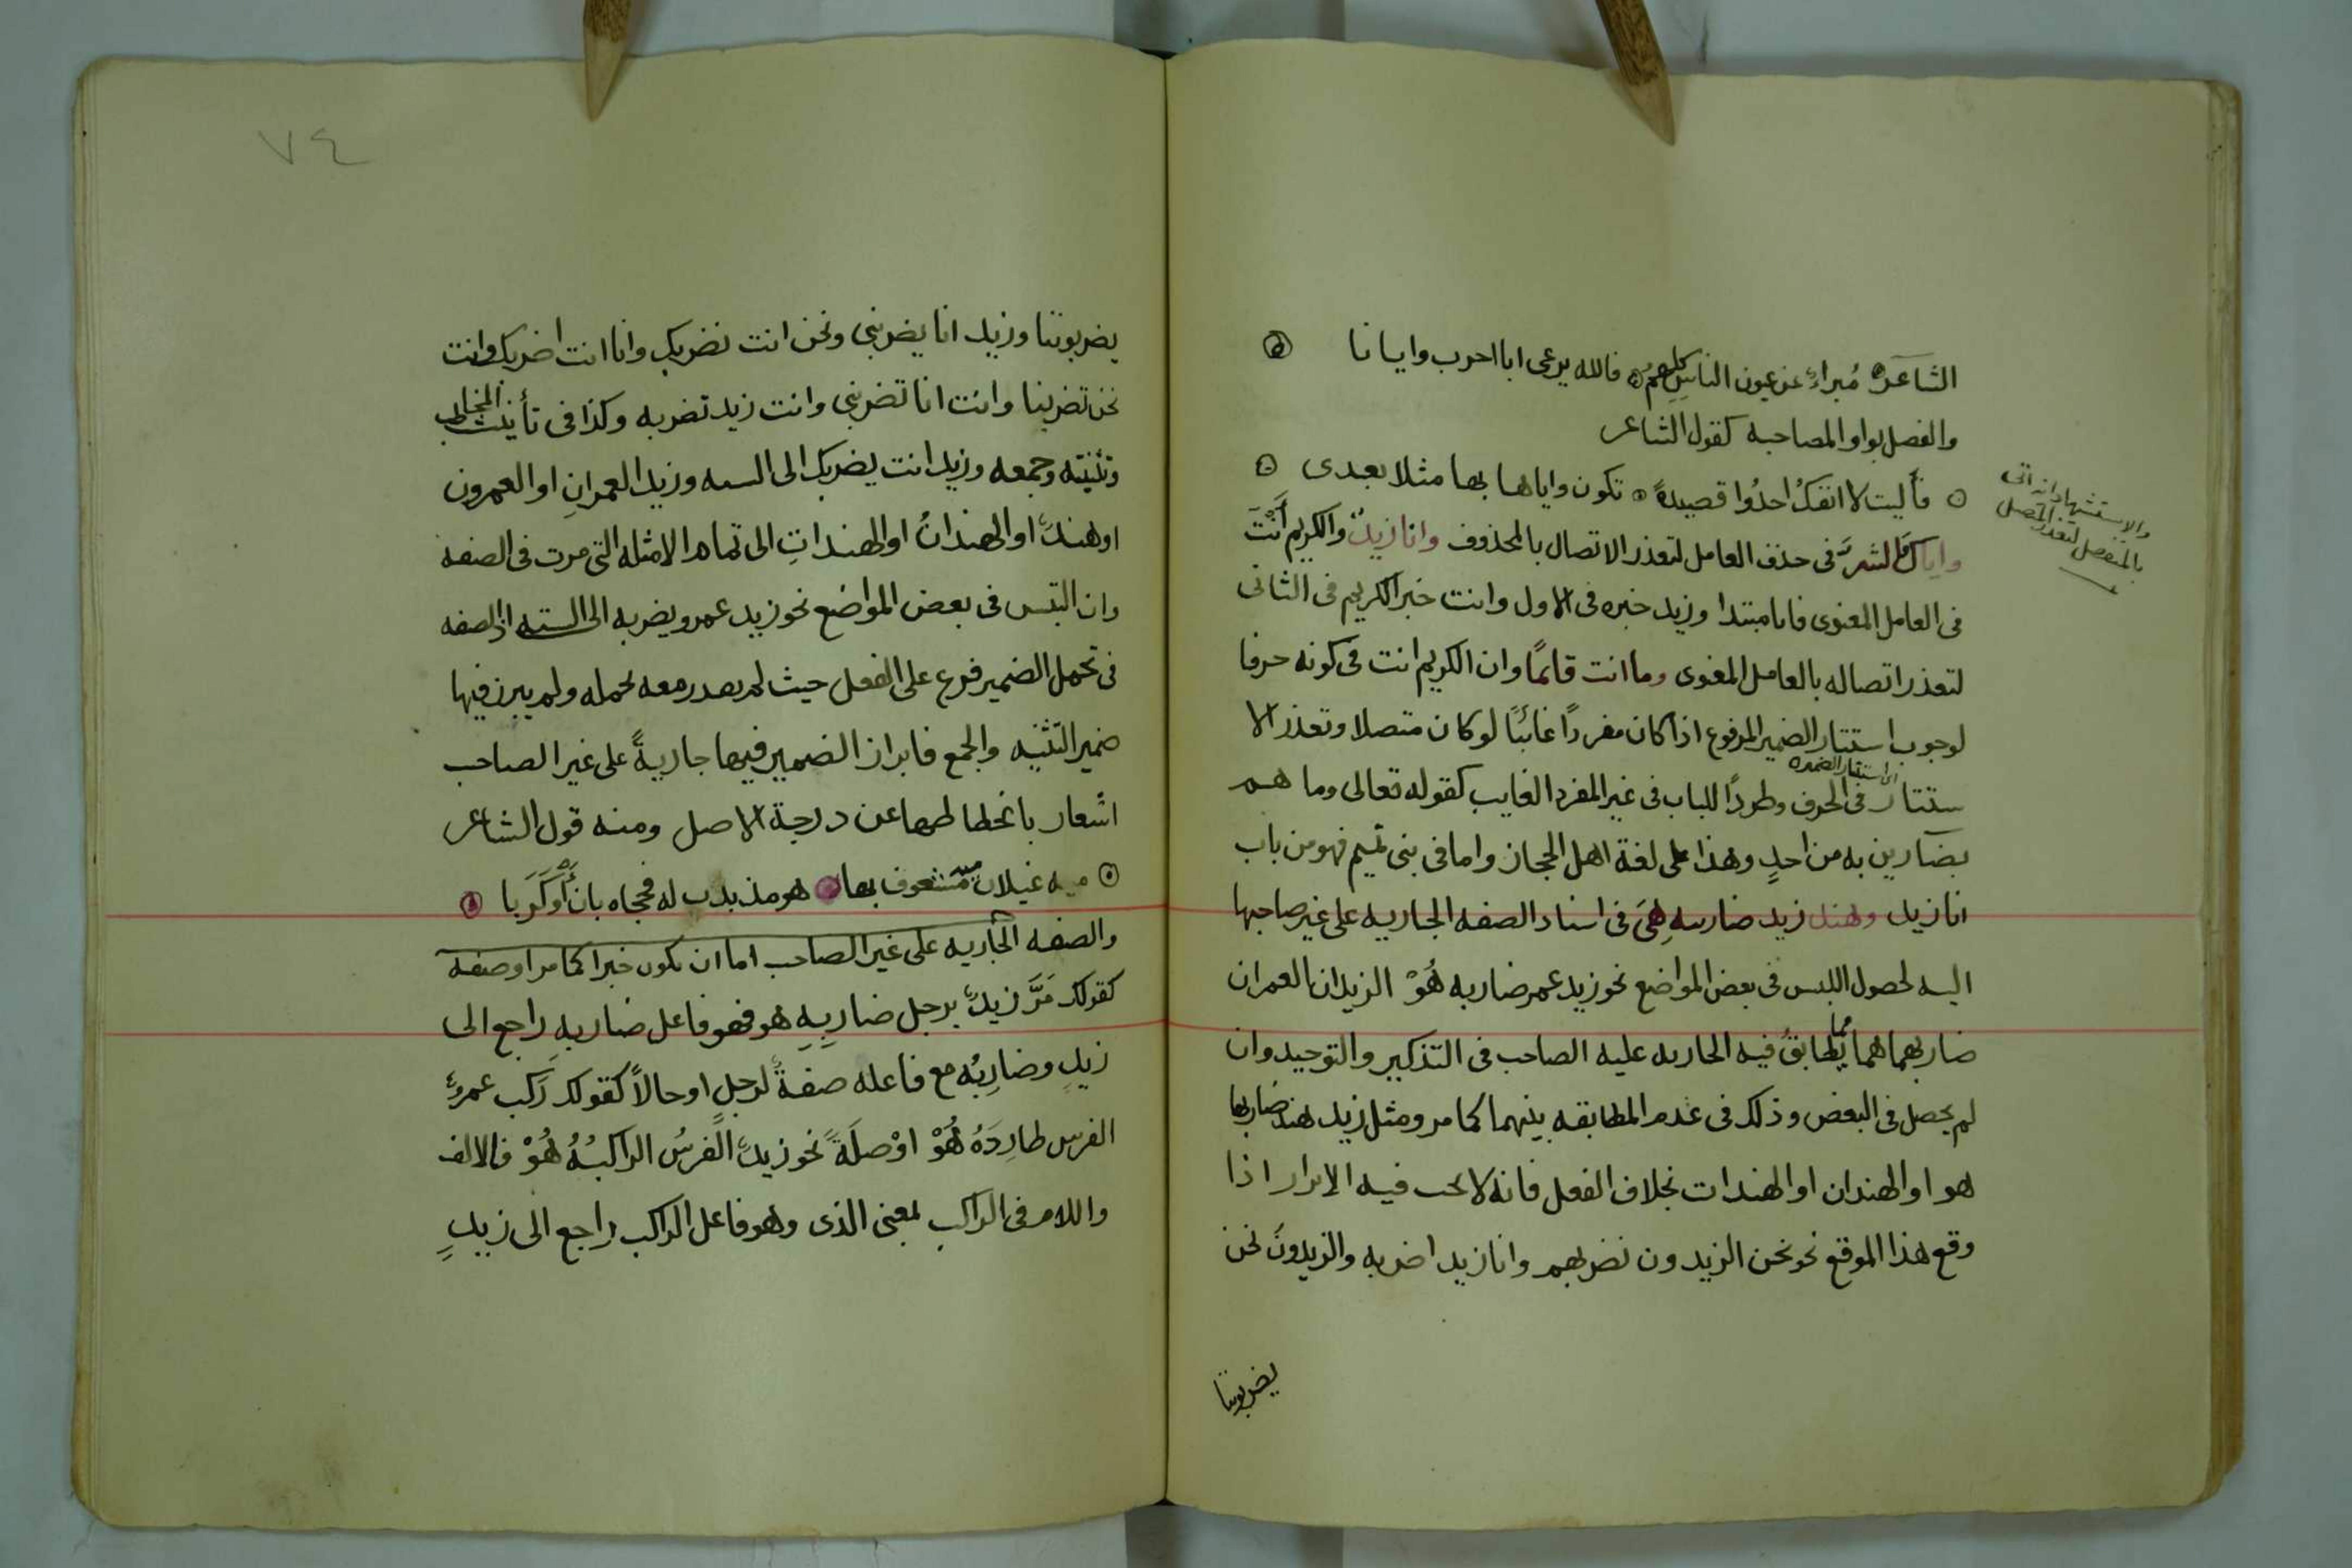 الشاعر مُبراءً عن عيون الناس كلهم فالله يرعى ابا حرب وايانا
والفصل بواو المصاحبه كقول الشاعر
فأليت لا انفكُ احذُوا قصيدةً تكون واياها بها مثلا بعدى
واياك والشرَّ فى حذف العامل لتعذر الاتصال بالمحذوف وانا زيدٌ والكريم أنْتَ
فى العامل المعنوى فانا مبتدا وزيد خبره فى الاول وانت خبر الكريم فى الثانى
لتعذر اتصاله بالعامل المعنوى وما انت قائمًا وان الكريم انت فى كونه حرفا
لوجوب استتار الضمير المرفوع اذا كان مفردًا غائبًا لو كان متصلا وتعذر الا
اى استتار الضمير
ستتار فى الحرف وطردًا للباب فى غير المفرد الغايب كقوله تعالى وما هم
بضارين به من احدٍ وهذا على لغة اهل الحجاز واما فى بنى تميم فهو من باب
انا زيد وهند زيد ضاربته هِىَ فى اسناد الصفه الجاريه على غير صاحبها
اليه لحصول اللبس فى بعض المواضع نحو زيد عمر ضاربه هُوْ الزيدان العمران
ضاربهما هما مما يطابقُ فيه الجاريه عليه الصاحب فى التذكير والتوحيد وان
لم يحصل فى البعض وذلك فى عدم المطابقه بينهما كما مر ومثل زيد هند ضاربها
هو او الهندان او الهندات بخلاف الفعل فانه لا يجب فيه الابراز اذا
وقع هذا الموقع نحو نحن الزيدون نضربهم وانا زيد اضربه والزيدونَ نحن
يضربوننا
والاستشهاد انه اتى
بالمنفصل لتعذر المتصل
٧٤
يضربوننا وزيد انا يضربنى ونحن انت نضربك وانا انت اضربك وانت
نحن تضربنا وانت انا تضربنى وانت زيد تضربه وكذا فى تأنيث المخاطب
وتثنيته وجمعه وزيد انت يضربك الى السته وزيد العمرانِ او العمرون
او هندٌ او الهندانُ او الهنداتِ الى تمام الامثله التى مرت فى الصفه
وان التبس فى بعض المواضع نحو زيد عمرو يضربه الى السته اذ الصفه
فى تحمل الضمير فرع على الفعل حيث لم يصدر معه بحمله ولم يبرز فيها
ضمير التثنيه والجمع فابراز الضمير فيها جاريةً على غير الصاحب
اشعار بانحطاطها عن درجة الاصل ومنه قول الشاعر
ميه غيلان مشعوف بها هو مذ بدت له فحجاه بان أوْ كَرَبا
والصفه الجاريه على غير الصاحب اما ان يكون خبرا كما مر او صفه
كقولك مَرَّ زيدٌ برجل ضاربِهِ هو فهو فاعل ضاربه راجع الى
زيدٍ وضاربُه مع فاعله صفةٌ لرجلٍ او حالاً كقولك ركب عمروٌ
الفرس طارِدَهُ هُوْ اوْ صلَةً نحو زيدٌ الفرسُ الراكبُهُ هُوْ فالالف
واللام فى الراكب بمعنى الذى وهو فاعل الراكب راجع الى زيدٍ